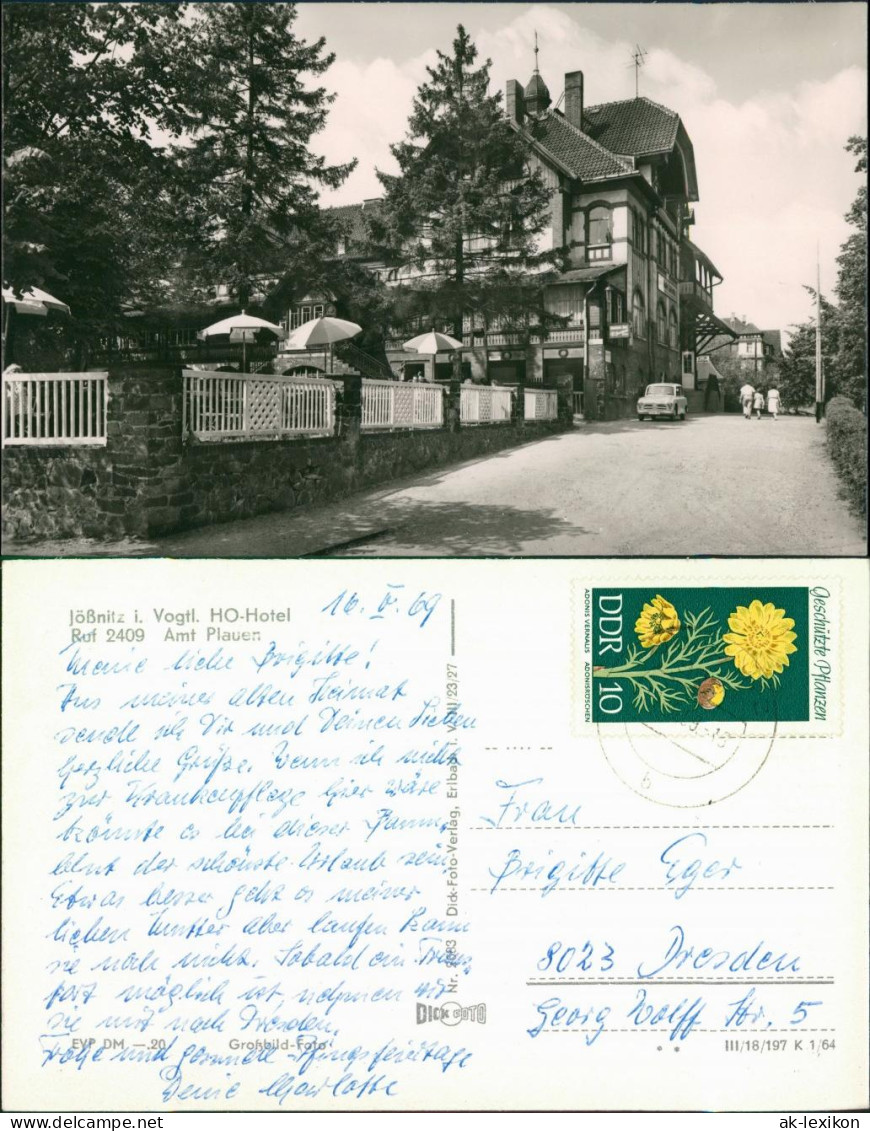 Jößnitz i. Vogtl. HO-Hotel
Ruf 2409 Amt Plauen
16. V. 69
Meine liebe Brigitte!
Aus meiner alten Heimat
sende ich Dir und Deinen Lieben
herzliche Grüße. Wenn ich nicht
zur Krankenpflege hier wäre
könnte es bei dieser Baum-
blut der schönste Urlaub sein.
Etwas besser geht es meiner
lieben Mutter aber laufen kann
sie noch nicht. Sobald ein Trans-
port möglich ist, nehmen wir
sie mit nach Dresden.
Frohe und gesunde Pfingstfeiertage
Deine Charlotte
EVP DM —.20 Großbild-Foto
Dick-Foto-Verlag, Erlbach i. V.
DICK FOTO
Geschützte Pflanzen
DDR 10
ADONIS VERNALIS ADONISRÖSCHEN
Frau
Brigitte Eger
8023 Dresden
Georg Wolff Str. 5
III/18/197 K 1/64
ak-lexikon